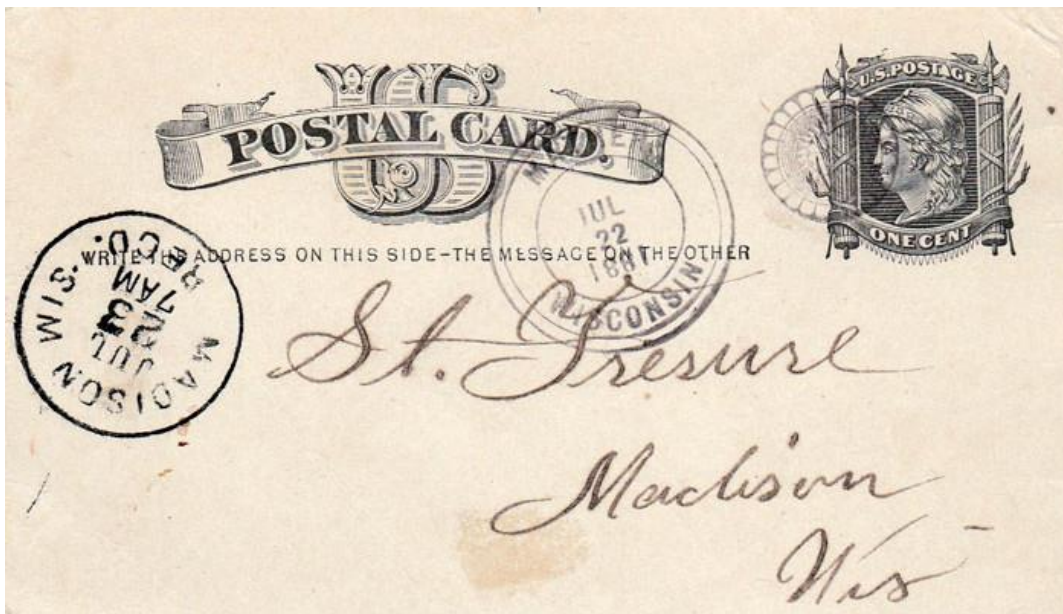 US
POSTAL CARD.
U.S. POSTAGE
ONE CENT
WRITE THE ADDRESS ON THIS SIDE-THE MESSAGE ON THE OTHER
JUL
22
1881
WISCONSIN
MADISON WIS.
JUL
23
7AM
REC'D.
St. Tresure
Madison
Wis